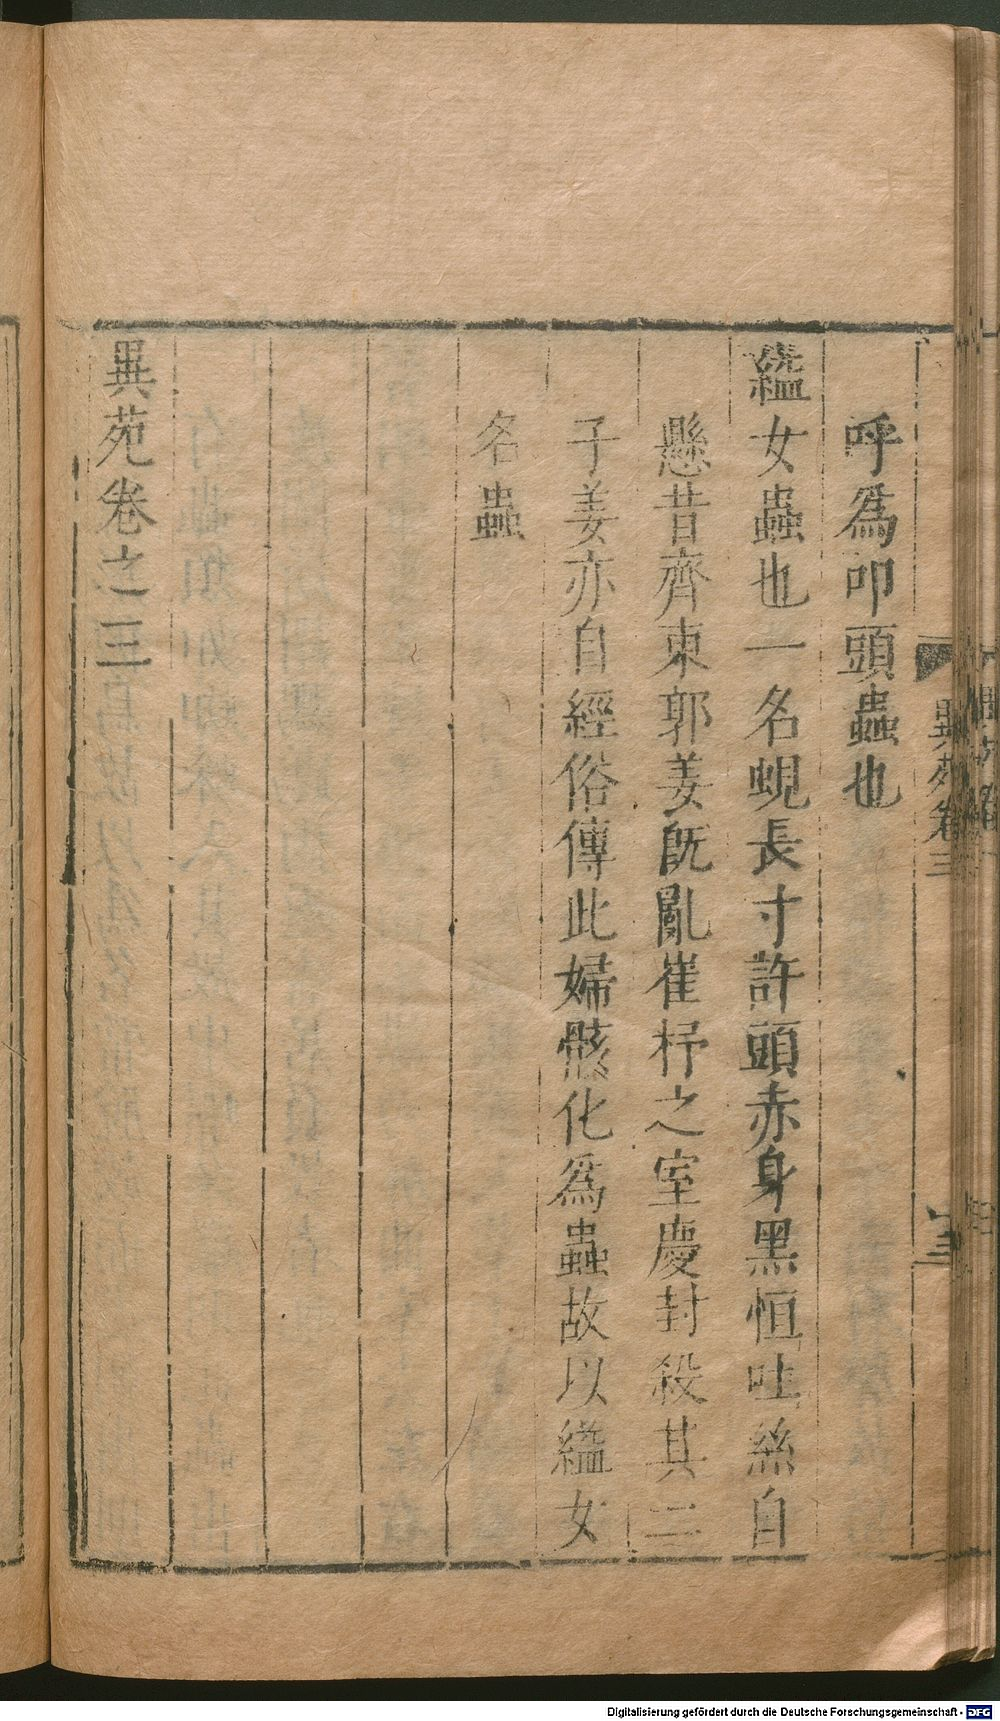 呼爲叩頭蟲也
縊女蟲也一名蜆長寸許頭赤身黑恒吐絲自
懸昔齊東郭姜旣亂崔杼之室慶封殺其二
子姜亦自經俗傳此婦骸化爲蟲故以縊女
名蟲
異苑卷之三
異苑卷三
Digitalisierung gefördert durch die Deutsche Forschungsgemeinschaft - DFG